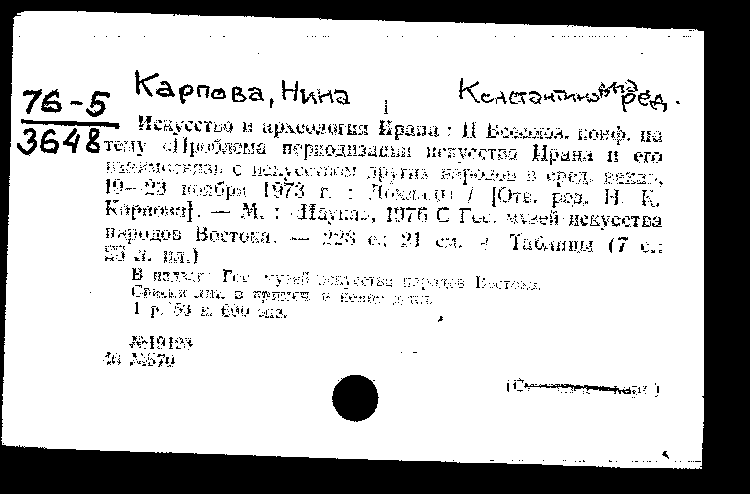 Карпова, Нина Константиновна
ред.
76-5
3648
Искусство и археология Ирана : II Всесоюз. конф. на
тему «Проблема периодизации искусства Ирана и его
взаимосвязь с искусством других народов в сред. века»,
19—23 ноября 1973 г. : Доклады / [Отв. ред. Н. К.
Карпова]. — М. : «Наука», 1976 Гос. музей искусства
народов Востока. — 228 с.; 21 см. + Таблицы (7 с.;
23 л. ил.)
В надзаг.: Гос. музей искусства народов Востока.
Список лит. в примеч. в конце докл.
1 р. 53 к. 600 экз.
№19193
№670
(См. карт.)